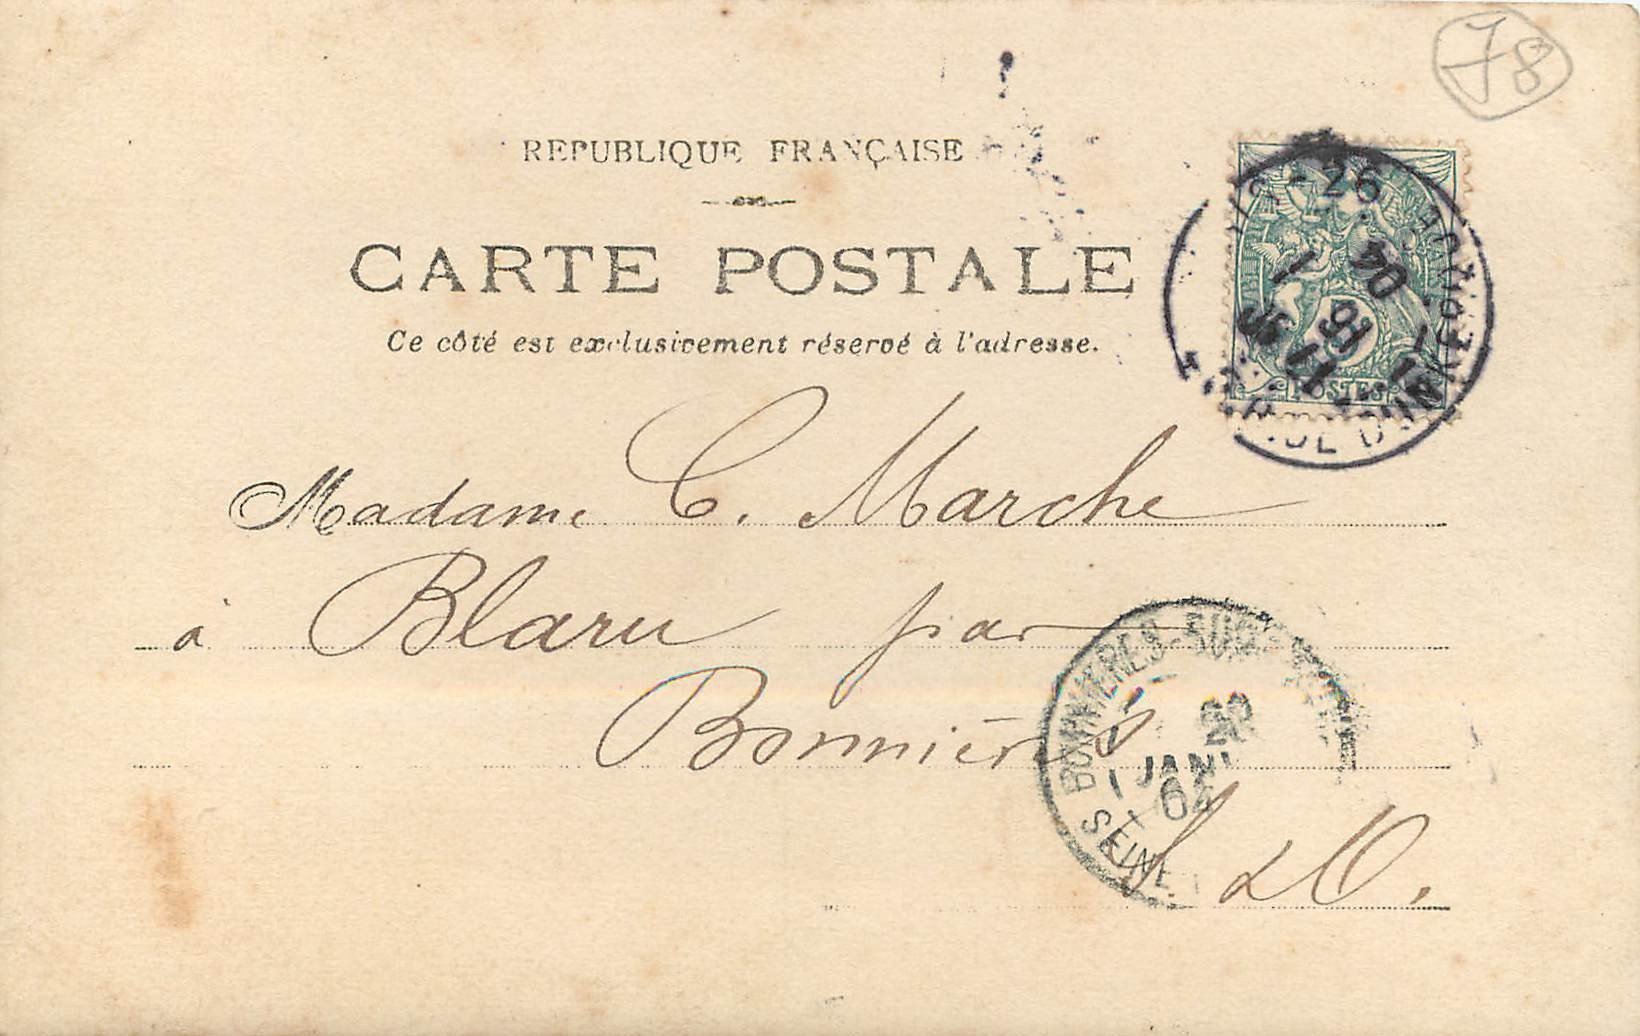 78
REPUBLIQUE FRANÇAISE
CARTE POSTALE
Ce côté est exclusivement réservé à l'adresse.
26
04
16
1
POSTES
Madame C. Marche
à Blaru par
Bonnières
S & O.
BONNIERES-SUR-SEINE
JANV
04
SEINE